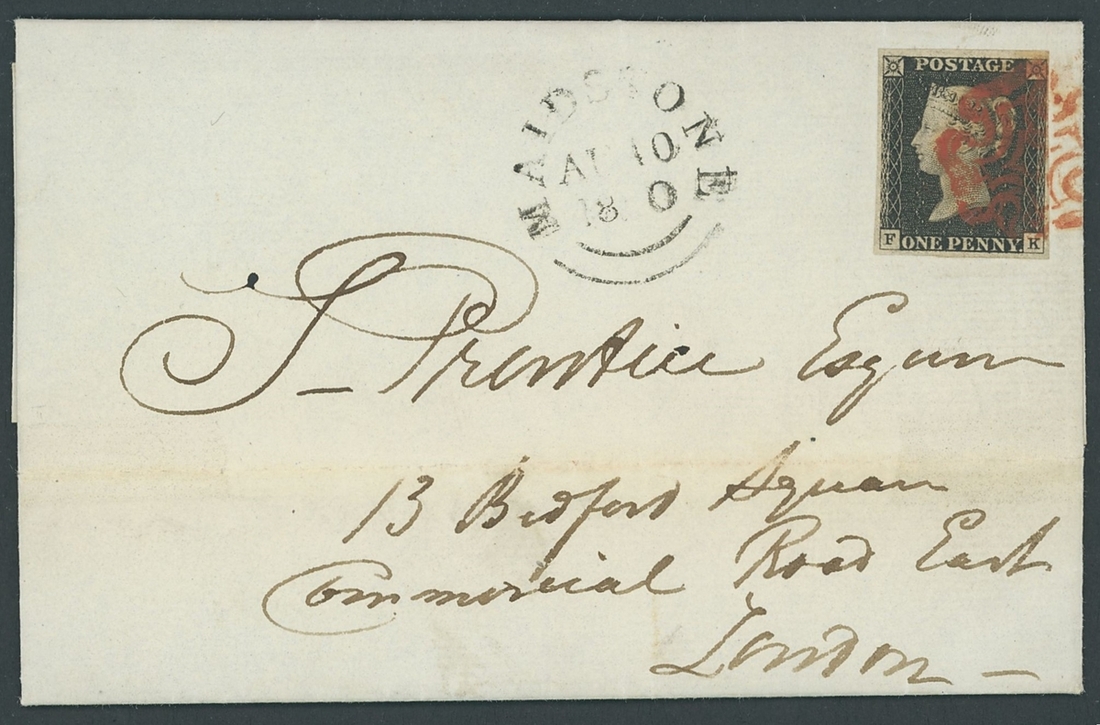 POSTAGE
F ONE PENNY. K
MAIDSTONE
AU 10
18 0
J – Prentice Esquire
13 Bedford Square
Commercial Road East
London –